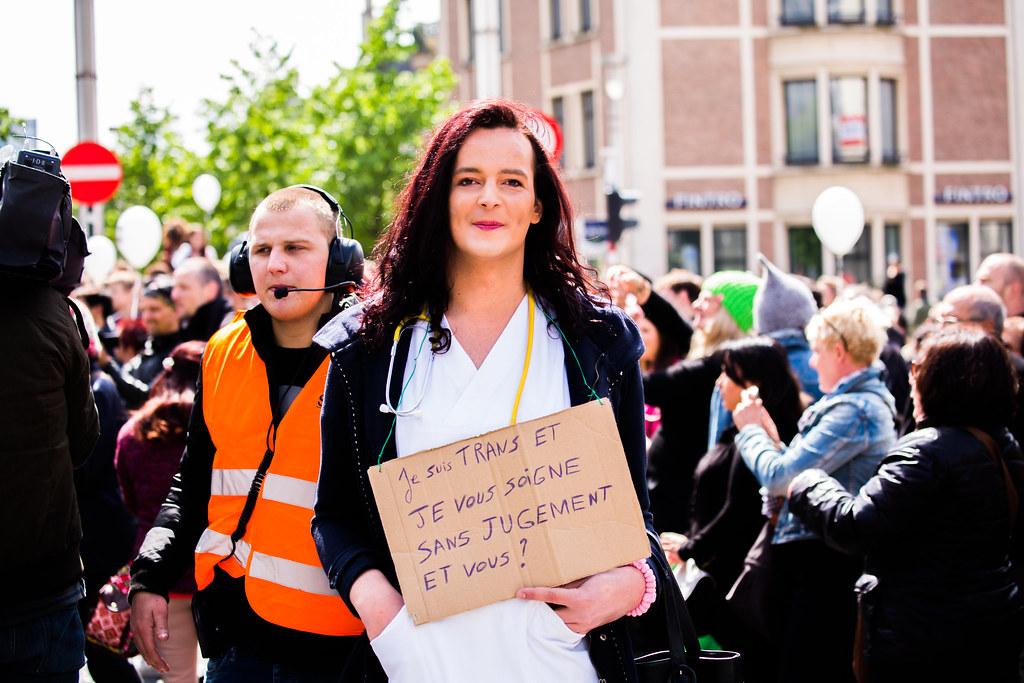 Je suis TRANS ET
JE VOUS SOIGNE
SANS JUGEMENT
ET VOUS ?
FINTRO
FINTRO